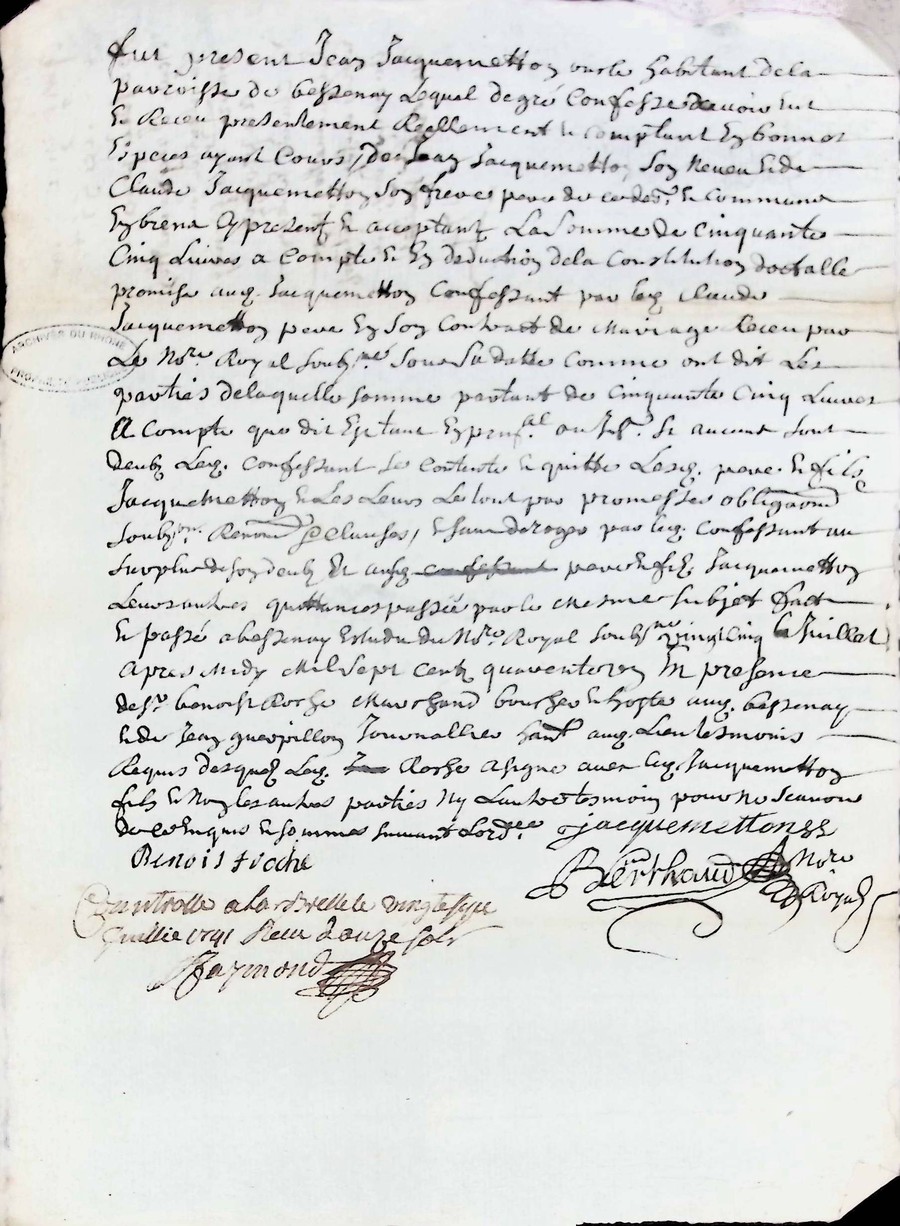 fut present Jean Jacquemetton oncle habitant de la
parroisse de bessenay Lequel de gré Confesse davoir eut
Et Receu presentement Reellement & comptant En bonnes
Especes ayant Cours, de Jean Jacquemetton Son Neveu & de
Claude Jacquemetton Son frere pere de cedr. Et Commune
En brena Cy present & acceptant La Somme de Cinquante
Cinq Livres a Compte & En deduction de la Constitution dotalle
promise aud. Jacquemetton Confessant par led. Claude
Jacquemetton pere En Son Contract de Mariage Receu par
Le Nore. Royal Soubne. Sous Sa datte Comme ont dit Les
parties de laquelle somme partant de Cinquante Cinq Livres
A Compte que dit Est tant En pnt. ou Si aucuns sont
deub Led. Confessant se Contente & quitte Lesd. pere & fils
Jacquemetton & Les Leurs Le tout par promesses obligaons
Soubns. Renons & Clauses, & sans deroger par led. Confessant au
Surplus de son deub Et aud. pere & fils Jacquemetton
Leurs autres quittances passée par le Mesme Subjet fait
& passé a bessenay Estude du Nore. Royal Soubne. vingt Cinq Juillet
Apres Midy Mil Sept Cent quarente un En presence
de Sr. benoist Roche Marchand boucher & hoste aud. bessenay
& de Jean guerpillon Journallier hant. aud. Lieu tesmoins
Requis desquels Led. Roche a signé avec led. Jacquemetton
fils & Non les autres parties Ny Lautre tesmoin pour ne Scavoir
de ce Enquis & sommes suivant Lordce. Jacquemetton
Benoist roche
Berthaud Nore Royal
Controllé a Larbrelle le vingt sept
Juillie 1741 Receu douze sols
Raymond
ARCHIVES DU RHONE